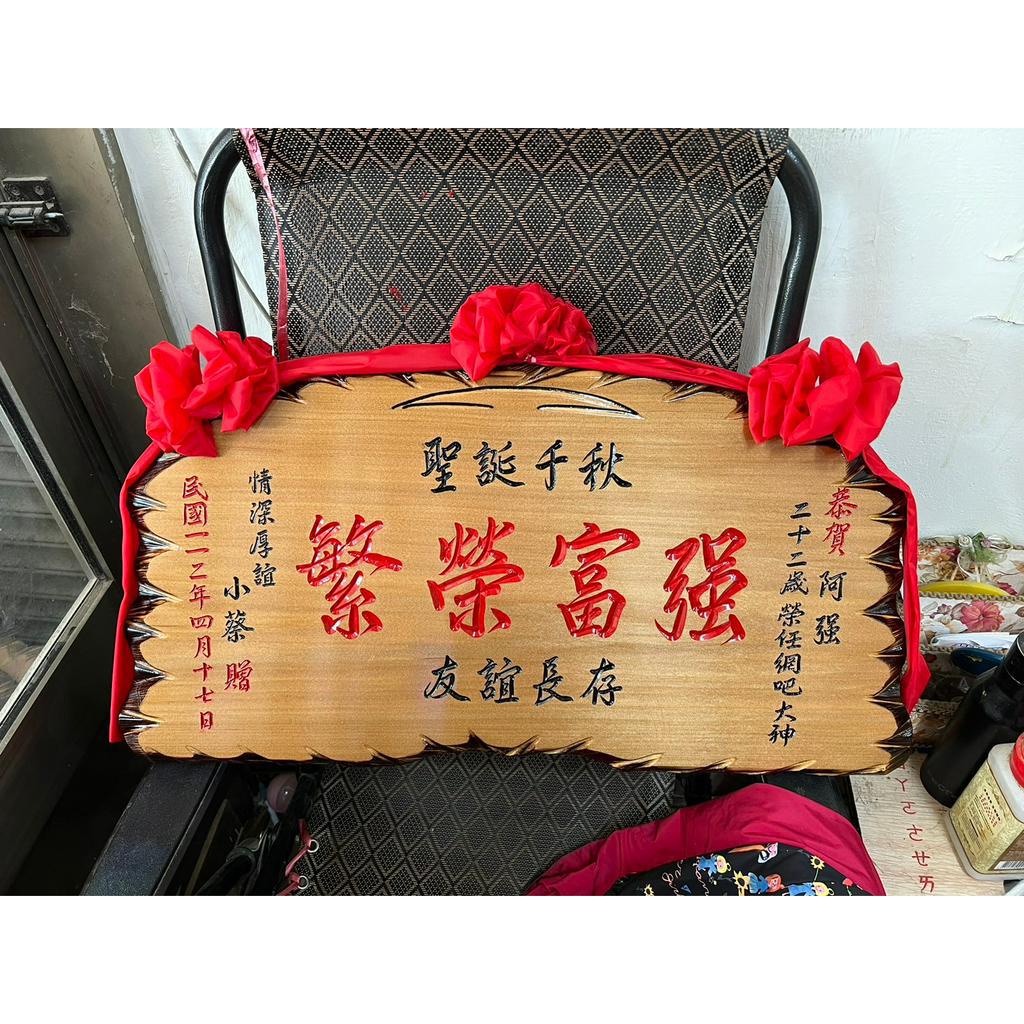 恭賀
阿强
二十二歲榮任網吧大神
聖誕千秋
繁榮富强
友誼長存
情深厚誼
小蔡 贈
民國一一二年四月十七日